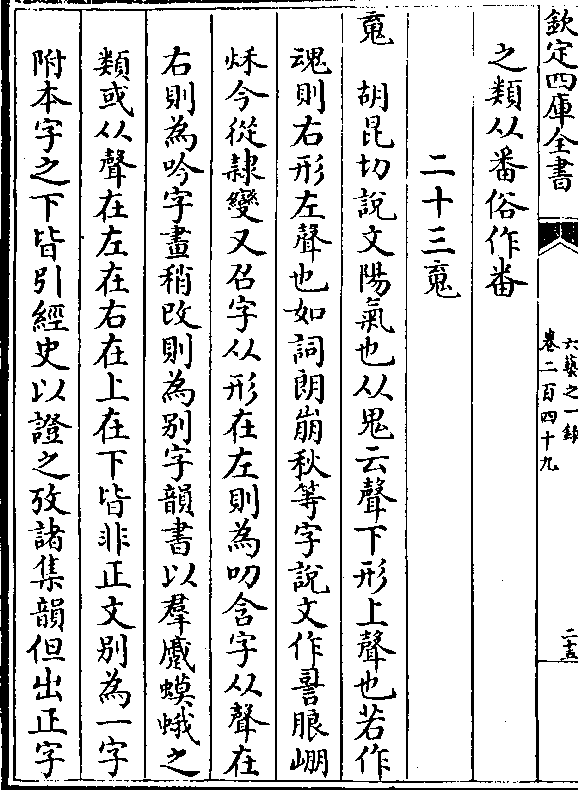 欽定四庫全書
六藝之一錄
卷二百四十九
之類从番俗作畨
二十三䰟
䰟　胡昆切說文陽氣也从鬼云聲下形上聲也若作
魂則右形左聲也如詞朗崩秋等字說文作䛐朖𡹔
秌今從隸變又召字从形在左則為叨含字从聲在
右則為吟字畫稍改則為别字韻書以羣麐蟆蛾之
類或从聲在左在右在上在下皆非正文别為一字
附本字之下皆引經史以證之攷諸集韻但出正字